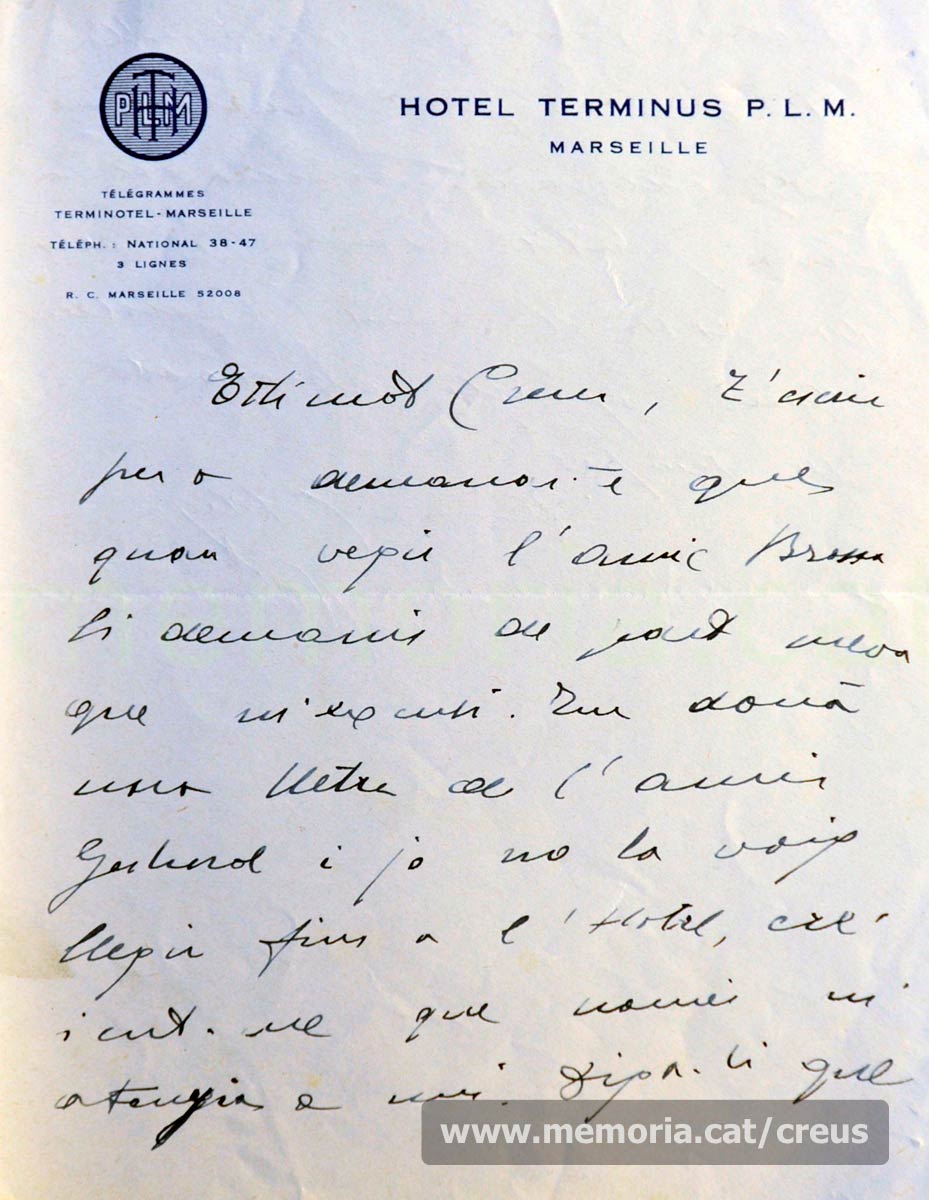 PLM TH
HOTEL TERMINUS P. L. M.
MARSEILLE
TÉLÉGRAMMES
TERMINOTEL - MARSEILLE
TÉLÉPH. : NATIONAL 38-47
3 LIGNES
R. C. MARSEILLE 52008
Estimat Creus, T'escric
per a demanar-te que
quan vegis l'amic Brossa
li demanis de part meva
que m'excusi. Em donà
una lletra de l'amic
Gerhard i jo no la vaig
llegir fins a l'Hotel, cre
ient-me que només m'
atenyia a mi. Diga-li que
www.memoria.cat/creus